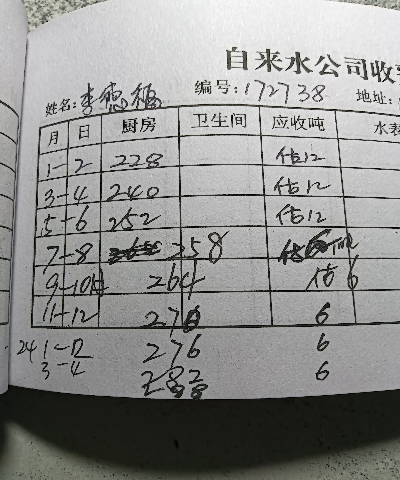 自来水公司收
姓名:李德福 编号:172738 地址:
月 日 厨房 卫生间 应收吨 水表
1-2 228 估12
3-4 240 估12
5-6 252 估12
7-8 258
9-10 264 估6
11-12 276 6
24 1-12 276 6
3-4 282 6